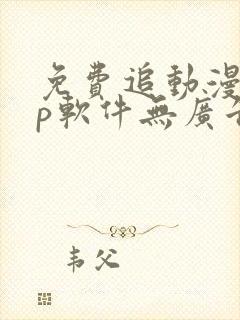 免費追動漫
p軟件無廣告
韦父